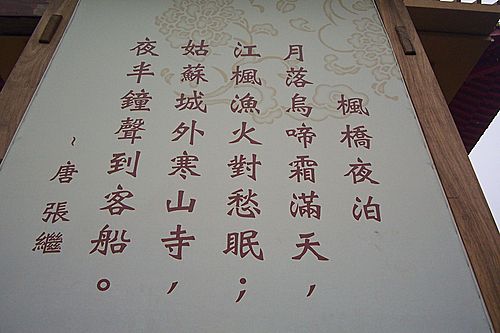 楓橋夜泊
月落烏啼霜滿天，
江楓漁火對愁眠；
姑蘇城外寒山寺，
夜半鐘聲到客船。
~唐 張繼